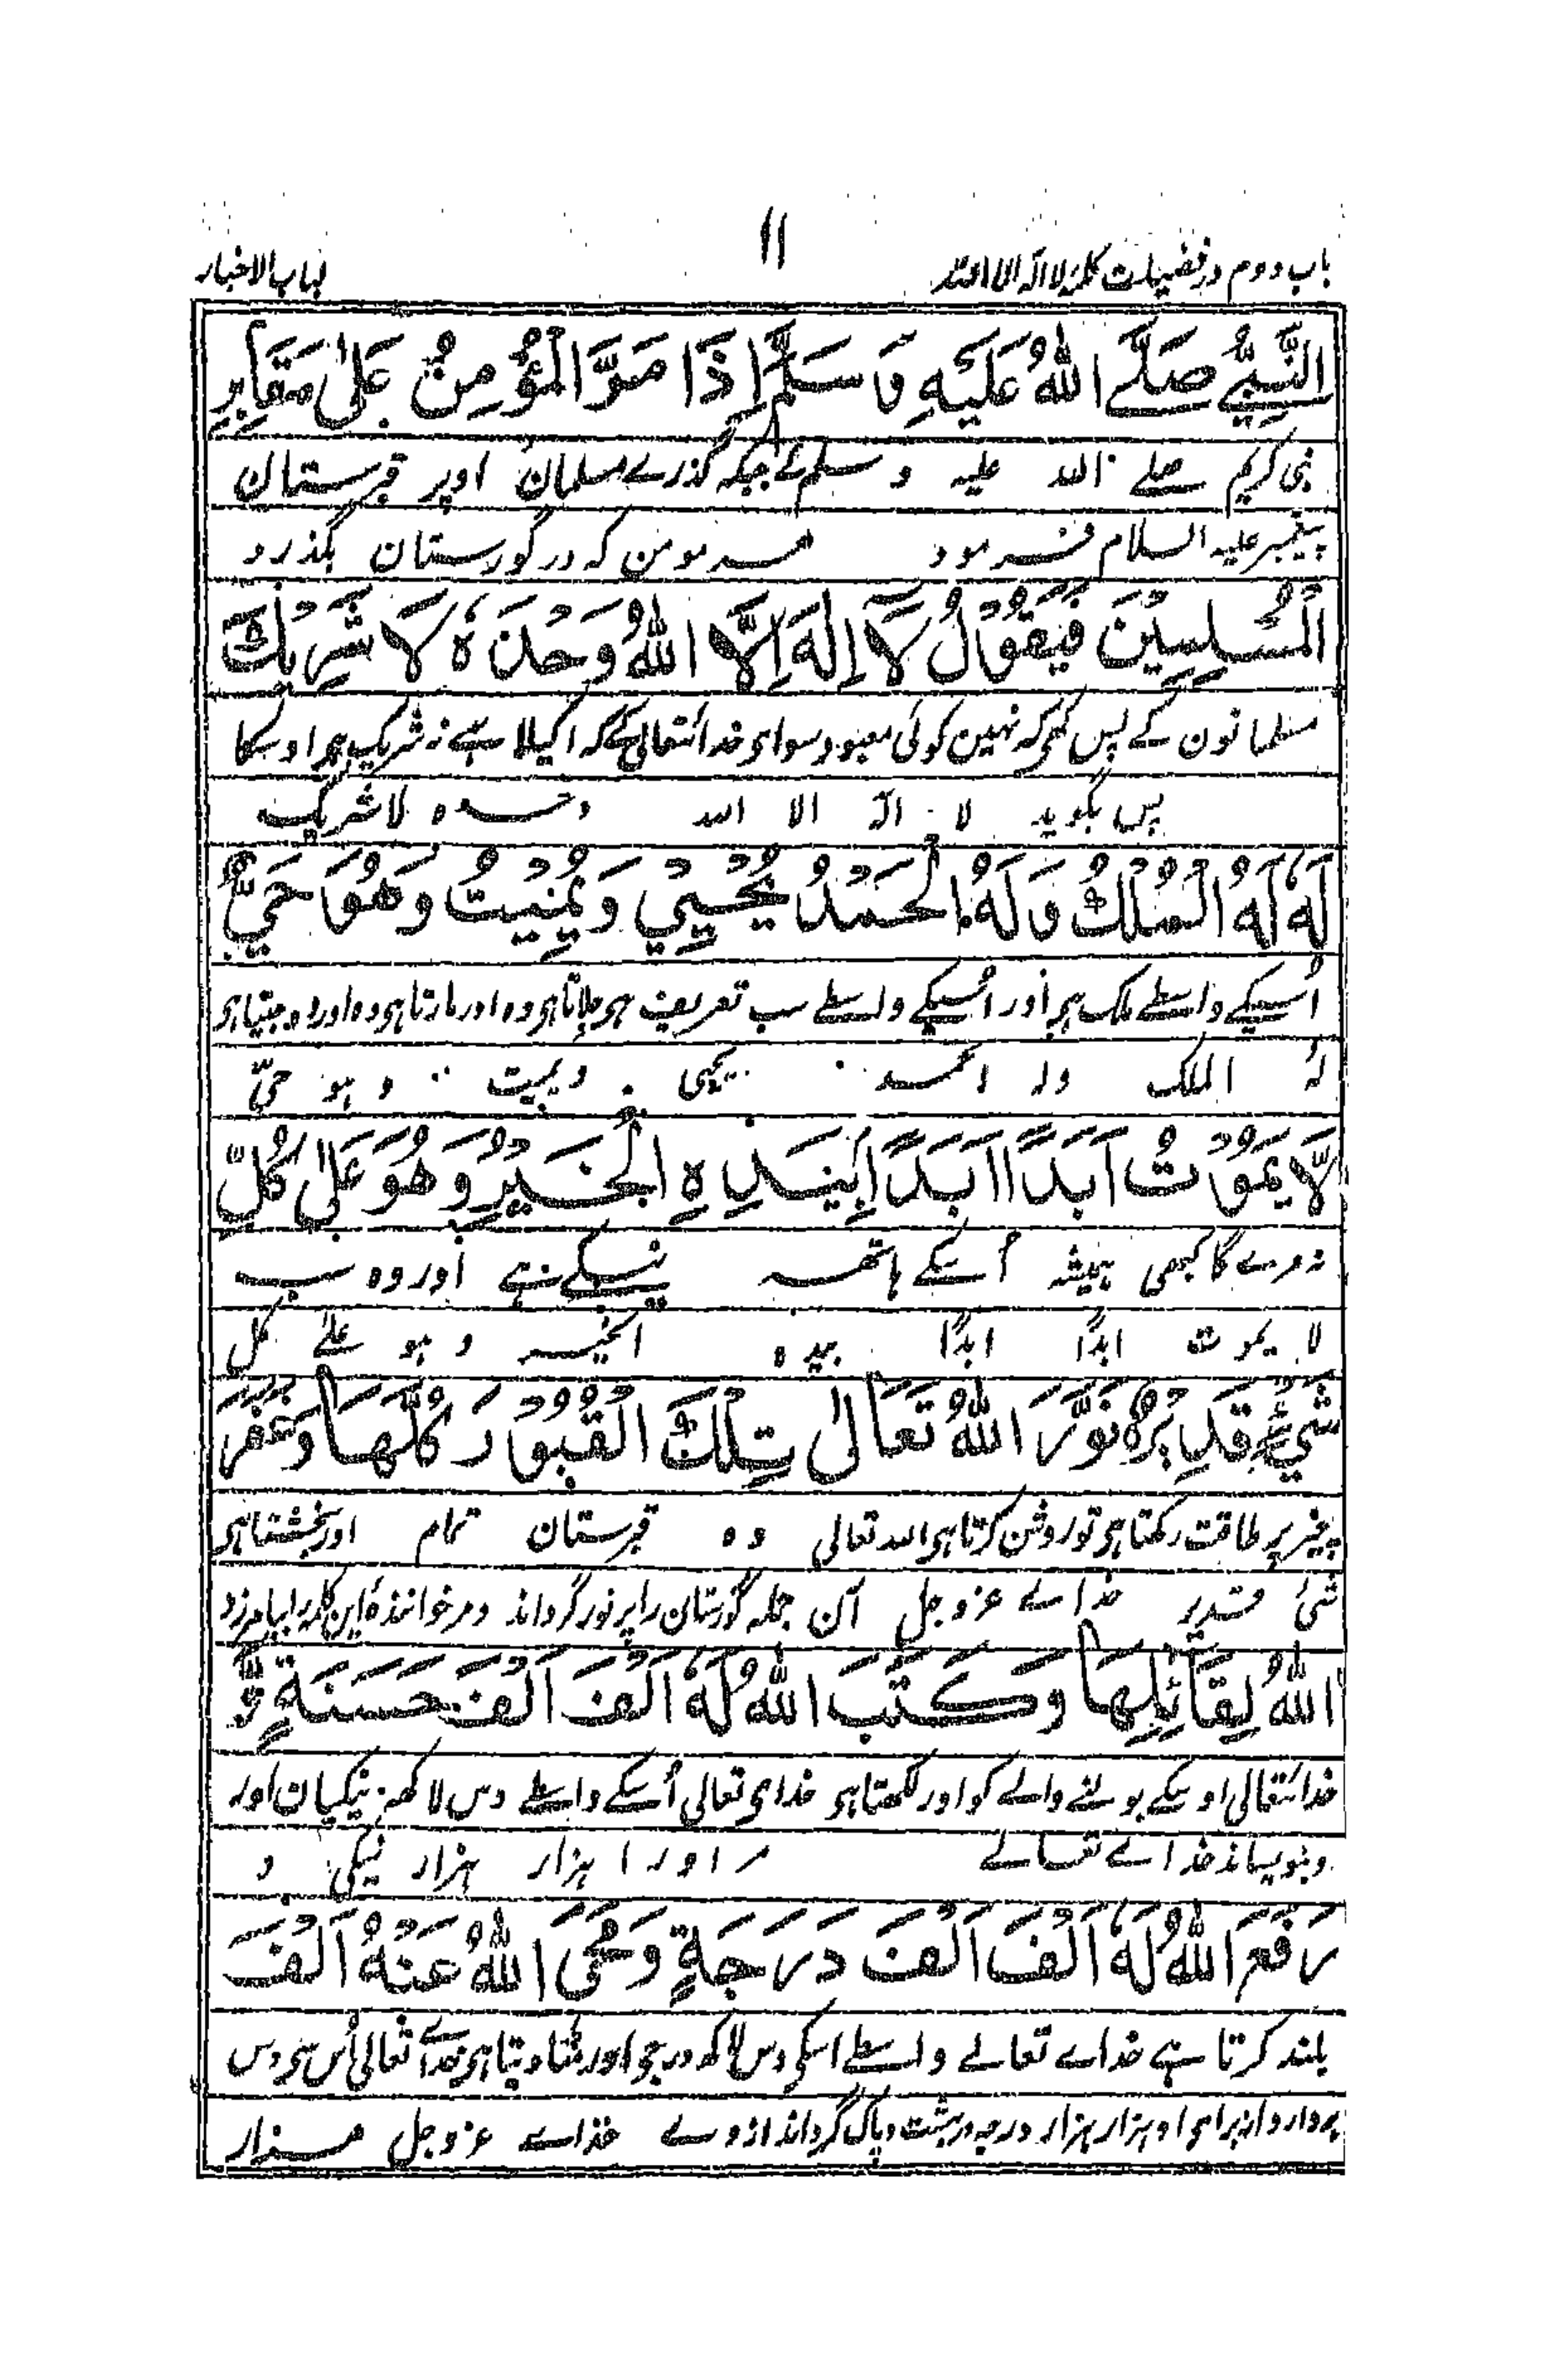 ۱۱
باب دوم در فضیلت کلمۂ لا الہ الا اللہ
لباب الاخبار
النَّبِيُّ صَلَّے اللهُ عَلَيْهِ وَسَلَّمَ اِذَا مَرَّ الْمُؤْمِنُ عَلٰى مَقَابِرِ
نبی کریم صلے اللہ علیہ و سلم نے جبکہ گذرے مسلمان اوپر قبرستان
پیغمبر علیہ السلام فرمود ہر مومن کہ در گورستان بگذرد
الْمُسْلِمِيْنَ فَيَقُوْلُ لَآ اِلٰهَ اِلَّا اللهُ وَحْدَهٗ لَا شَرِيْكَ
مسلمانون کے پس کہی کہ نہین کوئی معبود سوای خدائتعالی کے کہ اکیلا ہے نہ شریک ہی اوسکا
پس بگوید لا الہ الا اللہ وحدہ لا شریک
لَهٗ لَهُ الْمُلْكُ وَلَهُ الْحَمْدُ يُحْيِيْ وَيُمِيْتُ وَهُوَ حَيٌّ
اُسیکے واسطے ملک ہی اور اُسیکے واسطے سب تعریف ہی جلاتا ہی وہ اور مارتا ہی وہ اور وہ جیتا ہی
لہ الملک ولہ الحمد یحیی ویمیت و ہو حیّ
لَّا يَمُوْتُ اَبَدًا اَبَدًا بِيَدِهِ الْخَيْرُ وَهُوَ عَلٰى كُلِّ
نہ مرے گا کبھی ہمیشہ اُسکے ہاتھ نیکے ہے اور وہ سب
لا یموت ابدًا ابدًا بیدہ الخیر و ہو علے کل
شَيْءٍ قَدِيْرٌ نَوَّرَ اللهُ تَعَالٰى تِلْكَ الْقُبُوْرَ كُلَّهَا وَغَفَرَ
چیز پر طاقت رکھتا ہی تو روشن کرتا ہی اللہ تعالی وہ قبرستان تمام اور بخشتا ہی
شئ قدیر خداے عزوجل آن جملہ گورستان را پر نور گرداند و مر خوانندۂ این کلمہ را بیامرزد
اللهُ لِقَائِلِهَا وَكَتَبَ اللهُ لَهٗ اَلْفَ اَلْفَ حَسَنَةٍ وَّ
خدائتعالی اوسکے بولنے والے کو اور لکھتا ہی خدای تعالی اُسکے واسطے دس لاکھ نیکیان اور
و بنویساند خداے تعالے مر اورا ہزار ہزار نیکی و
رَفَعَ اللهُ لَهٗ اَلْفَ اَلْفَ دَرَجَةٍ وَمَحَى اللهُ عَنْهُ اَلْفَ
بلند کرتا ہے خداے تعالے واسطے اسکی دس لاکھ درجی اور مٹا دیتا ہی خداے تعالی اُس سی دس
بردارد از برای او ہزار ہزار درجہ در بہشت و پاک گرداند ازوے خداے عزوجل ہزار